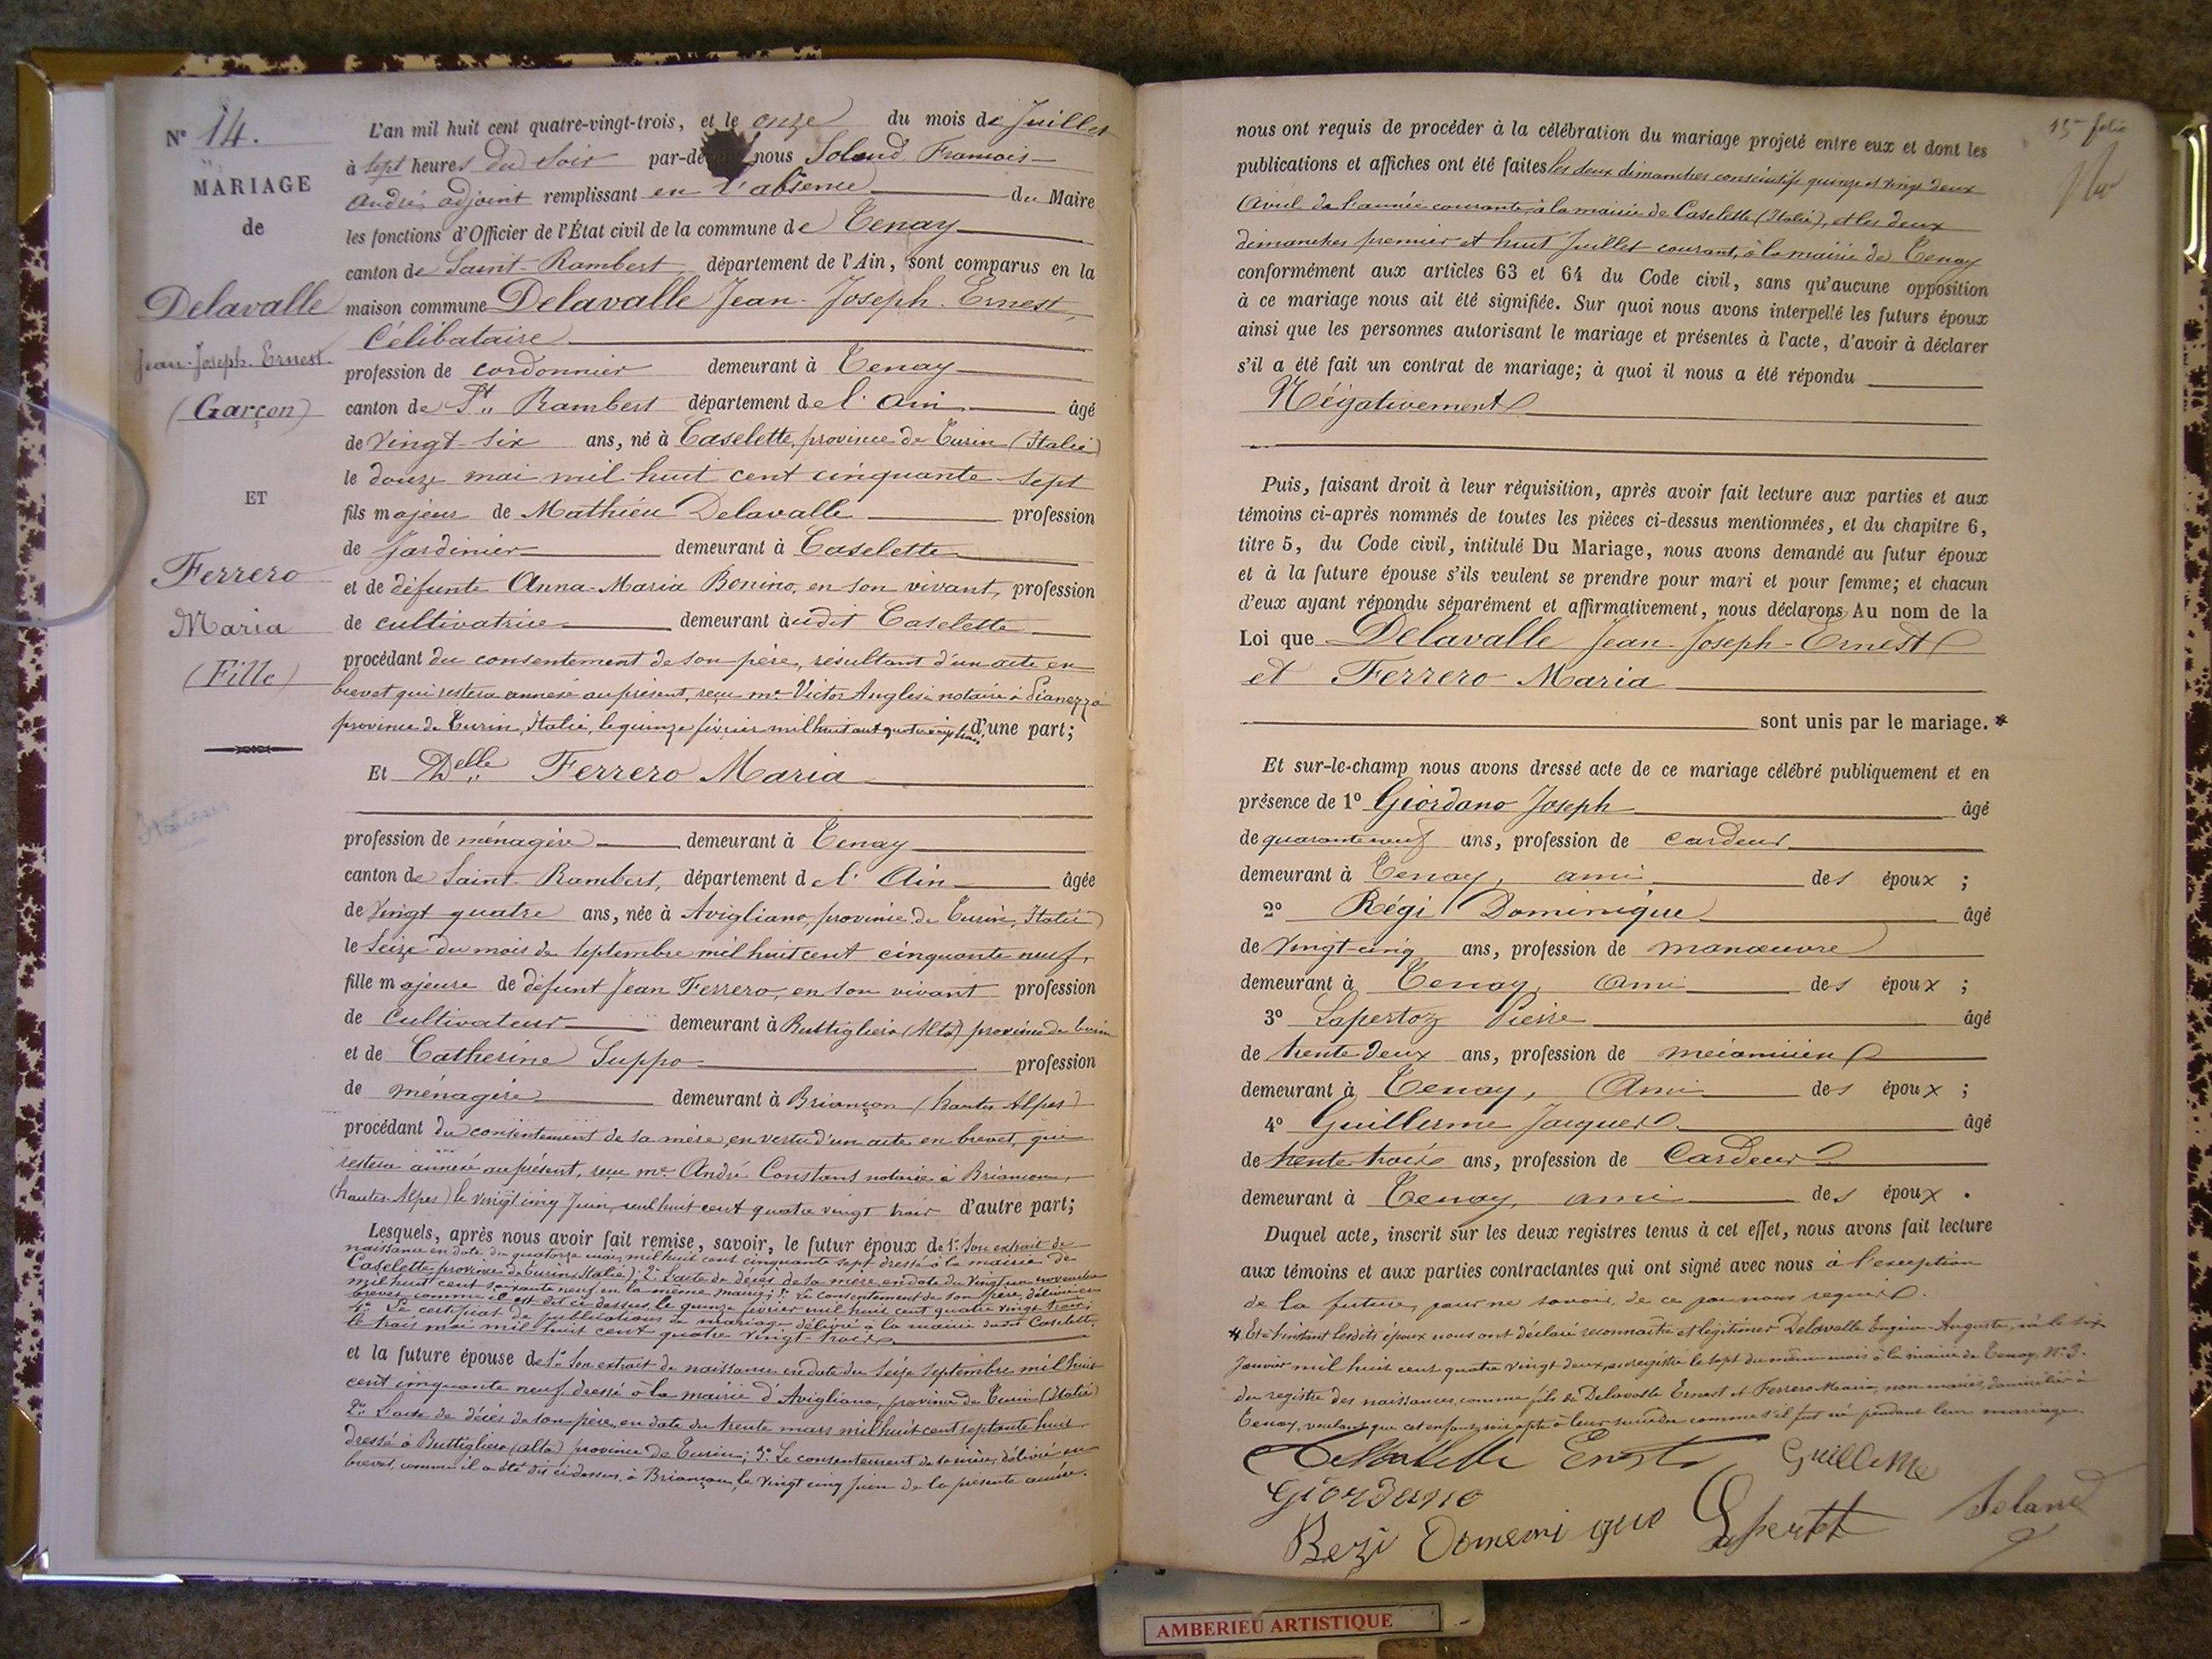 N° 14.
MARIAGE
de
Delavalle
Jean-Joseph-Ernest.
(Garçon)
ET
Ferrero
Maria
(Fille)
L'an mil huit cent quatre-vingt-trois, et le onze du mois de Juillet
à sept heures du soir par-de nous Soland François
André, adjoint remplissant en l'absence du Maire
les fonctions d'Officier de l'État civil de la commune de Tenay
canton de Saint-Rambert département de l'Ain, sont comparus en la
maison commune Delavalle Jean-Joseph-Ernest,
Célibataire
profession de cordonnier demeurant à Tenay
canton de St Rambert département de l'Ain âgé
de vingt-six ans, né à Caselette, province de Turin (Italie)
le douze mai mil huit cent cinquante-sept
fils majeur de Mathieu Delavalle profession
de Jardinier demeurant à Caselette
et de défunte Anna-Maria Bonino, en son vivant, profession
de cultivatrice demeurant audit Caselette
procédant du consentement de son père, résultant d'un acte en
brevet qui restera annexé au présent, reçu me Victor Anglesi notaire à Pianezza
province de Turin, Italie, le quinze février mil huit cent quatre vingt trois d'une part;
Et Delle Ferrero Maria
profession de ménagère demeurant à Tenay
canton de Saint-Rambert, département de l'Ain âgée
de vingt quatre ans, née à Avigliano, province de Turin, Italie
le seize du mois de septembre mil huit cent cinquante neuf,
fille majeure de défunt Jean Ferrero, en son vivant profession
de cultivateur demeurant à Buttigliera (Alta) province de turin
et de Catherine Suppo profession
de ménagère demeurant à Briançon (hautes Alpes)
procédant du consentement de sa mère, en vertu d'un acte en brevet, qui
restera annexé au présent, reçu me André Constans notaire à Briançon,
(hautes-Alpes) le vingt cinq Juin, mil huit cent quatre vingt trois d'autre part;
Lesquels, après nous avoir fait remise, savoir, le futur époux de 1° Son extrait de
naissance en date du quatorze mai mil huit cent cinquante sept dressé à la mairie de
Caselette, province de Turin (Italie); 2° L'acte de décès de sa mère, en date du vingt un novembre
mil huit cent soixante neuf en la même mairie; 3° Le consentement de son père, délivré en
brevet comme il est dit ci dessus, le quinze février mil huit cent quatre vingt trois;
4° Le certificat de publications de mariage délivré à la mairie dudit Caselette,
le trois mai mil huit cent quatre vingt trois
et la future épouse de 1° Son extrait de naissance, en date du seize septembre mil huit
cent cinquante neuf dressé à la mairie d'Avigliano, province de Turin (Italie)
2° L'acte de décès de son père, en date du trente mars mil huit cent septante huit
dressé à Buttigliera (alta) province de Turin; 3° Le consentement de sa mère, délivré en
brevet, comme il a été dit ci dessus, à Briançon, le vingt cinq juin de la présente année.
15me folio
nous ont requis de procéder à la célébration du mariage projeté entre eux et dont les
publications et affiches ont été faites les deux dimanches consécutifs quinze et vingt deux
Avril de l'année courante, à la mairie de Caselette (Italie), et les deux
dimanches premier et huit Juillet courant, à la mairie de Tenay
conformément aux articles 63 et 64 du Code civil, sans qu'aucune opposition
à ce mariage nous ait été signifiée. Sur quoi nous avons interpellé les futurs époux
ainsi que les personnes autorisant le mariage et présentes à l'acte, d'avoir à déclarer
s'il a été fait un contrat de mariage; à quoi il nous a été répondu
Négativement
Puis, faisant droit à leur réquisition, après avoir fait lecture aux parties et aux
témoins ci-après nommés de toutes les pièces ci-dessus mentionnées, et du chapitre 6,
titre 5, du Code civil, intitulé Du Mariage, nous avons demandé au futur époux
et à la future épouse s'ils veulent se prendre pour mari et pour femme; et chacun
d'eux ayant répondu séparément et affirmativement, nous déclarons Au nom de la
Loi que Delavalle Jean-Joseph-Ernest
et Ferrero Maria
sont unis par le mariage.*
Et sur-le-champ nous avons dressé acte de ce mariage célébré publiquement et en
présence de 1° Giordano Joseph âgé
de quarante neuf ans, profession de cardeur
demeurant à Tenay, ami des époux ;
2° Régi Dominique âgé
de vingt-cinq ans, profession de manœuvre
demeurant à Tenay, Ami des époux ;
3° Lapertoz Pierre âgé
de trente deux ans, profession de mécanicien
demeurant à Tenay, Ami des époux ;
4° Guillerme Jacques âgé
de trente trois ans, profession de Cardeur
demeurant à Tenay, ami des époux .
Duquel acte, inscrit sur les deux registres tenus à cet effet, nous avons fait lecture
aux témoins et aux parties contractantes qui ont signé avec nous à l'exception
de la future, pour ne savoir, de ce par nous requis.
* Et à l'instant lesdits époux nous ont déclaré reconnaître et légitimer Delavalle Eugène-Auguste, né le six
Janvier mil huit cent quatre vingt deux, enregistré le sept du même mois à la mairie de Tenay N° 3.
du registre des naissances, comme fils de Delavalle Ernest et Ferrero Maria, non mariés, domiciliés à
Tenay, voulant que cet enfant soit apte à leur succéder comme s'il fut né pendant leur mariage.
Delavalle Ernest Guillerme
Giordano
Bezi Domenique Lapertot Soland
AMBERIEU ARTISTIQUE